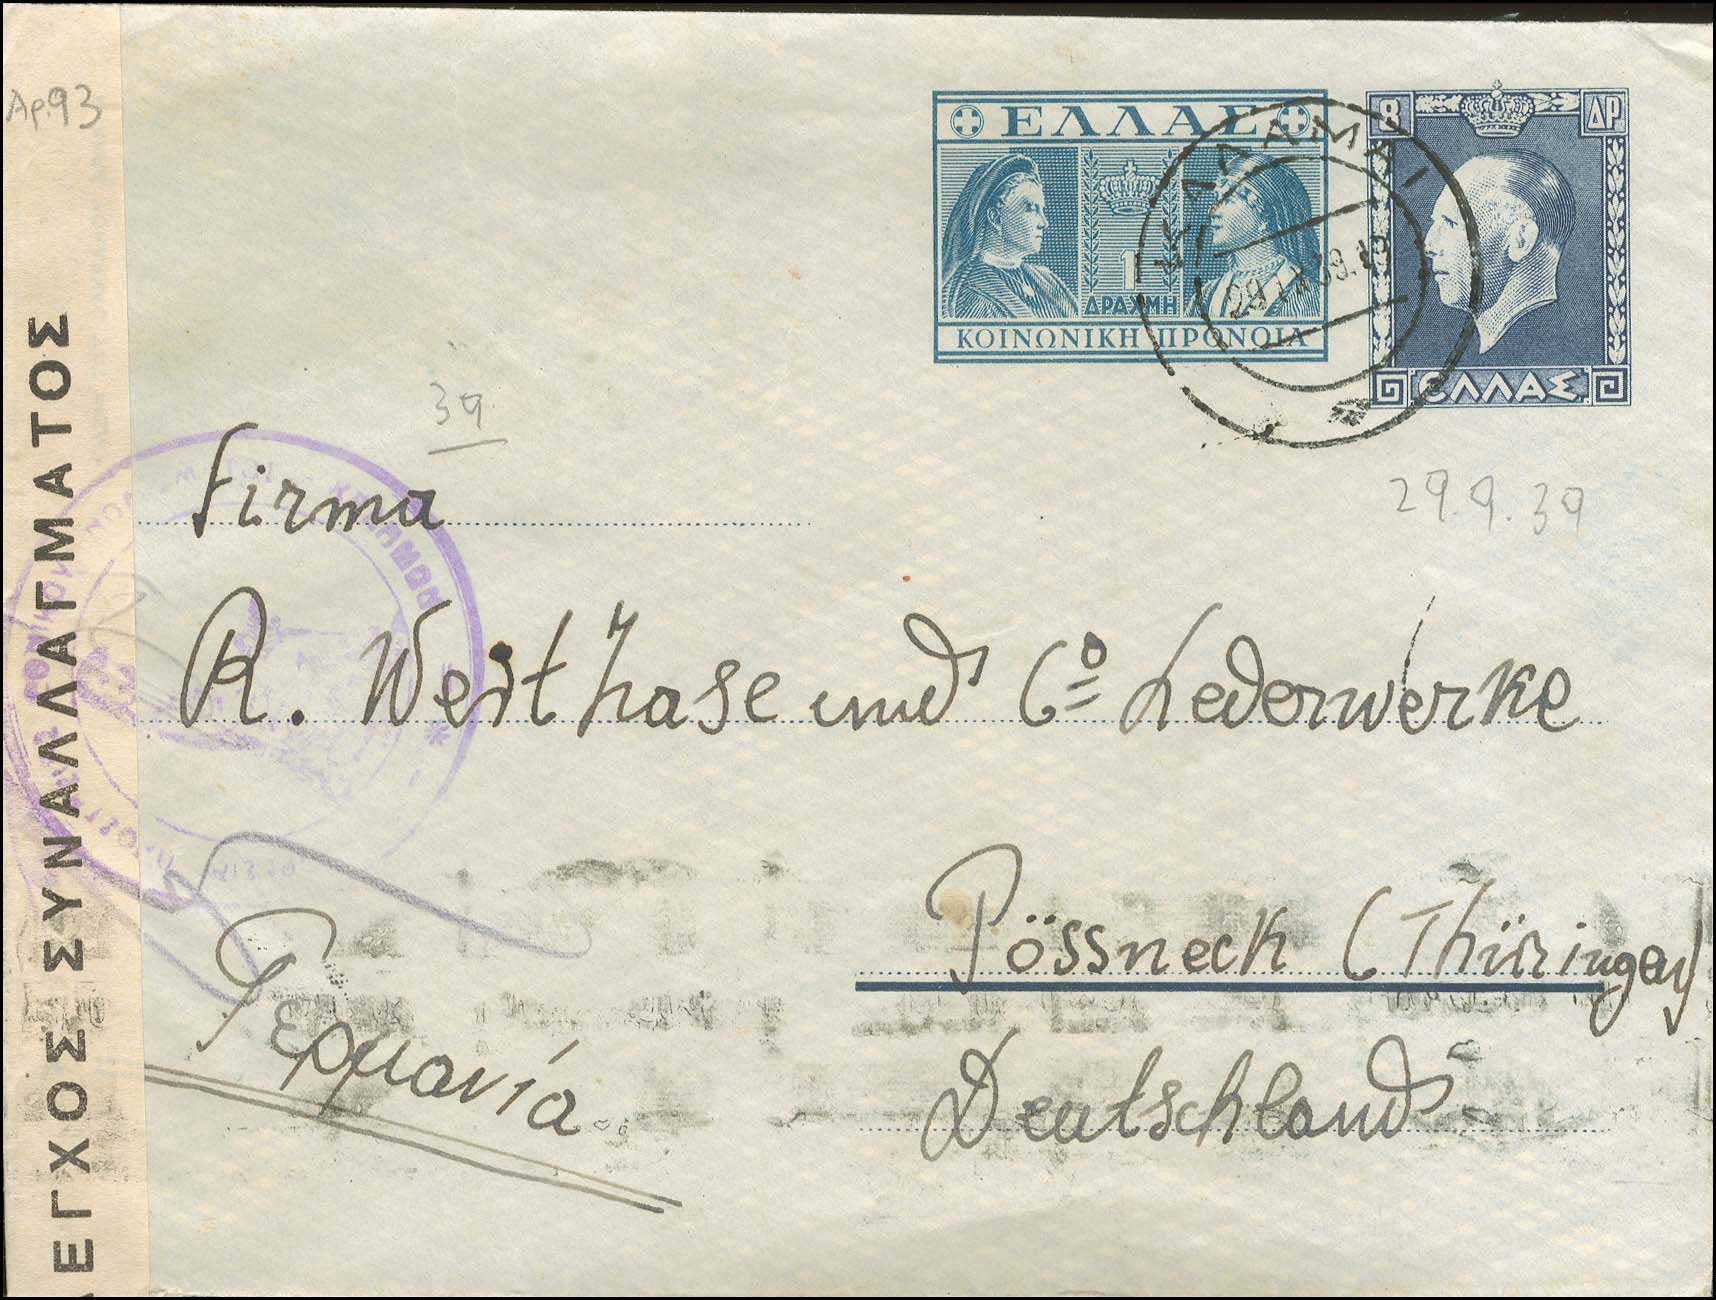 Αρ.93
ΕΛΛΑΣ
1
ΔΡΑΧΜΗ
ΚΟΙΝΩΝΙΚΗ ΠΡΟΝΟΙΑ
8 ΔΡ
ΕΛΛΑΣ
ΚΑΛΑΜΑΙ
29.9.39
39
Firma
R. Weithase und Cº Lederwerke
Pössneck (Thüringen)
Deutschland
Γερμανία
ΕΓΧΟΣ ΣΥΝΑΛΛΑΓΜΑΤΟΣ